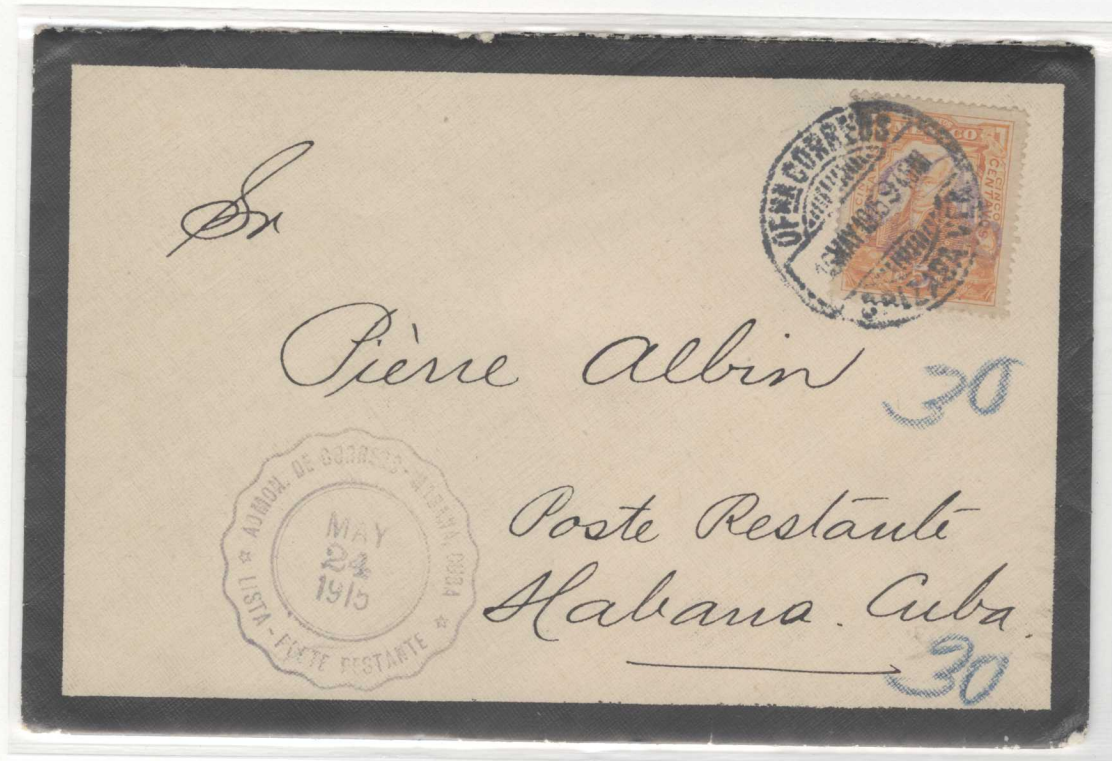 Sr
Pièrre Albin
Poste Restante
Habana. Cuba.
30
30
OFNA CORREOS
MAY
CINCO
CENTAVOS
ADMON. DE CORREOS - HABANA, CUBA
MAY
24
1915
LISTA - POSTE RESTANTE